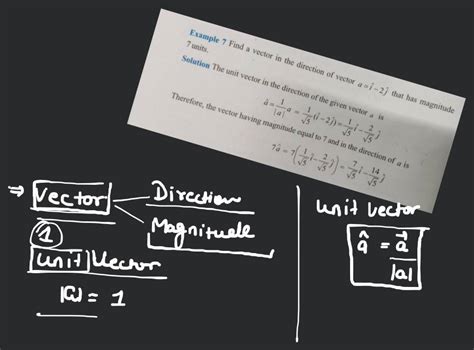 Example 7 Find a vector in the direction of vector a = î − 2ĵ that has magnitude
7 units.
Solution The unit vector in the direction of the given vector a is
â = 1/|a| a = 1/√5 (î − 2ĵ) = 1/√5 î − 2/√5 ĵ
Therefore, the vector having magnitude equal to 7 and in the direction of a is
7â = 7(1/√5 î − 2/√5 ĵ) = 7/√5 î − 14/√5 ĵ
⇒ Vector
Direction
Magnitude
1
unit Vector
|a| = 1
unit vector
â = a⃗/|a|